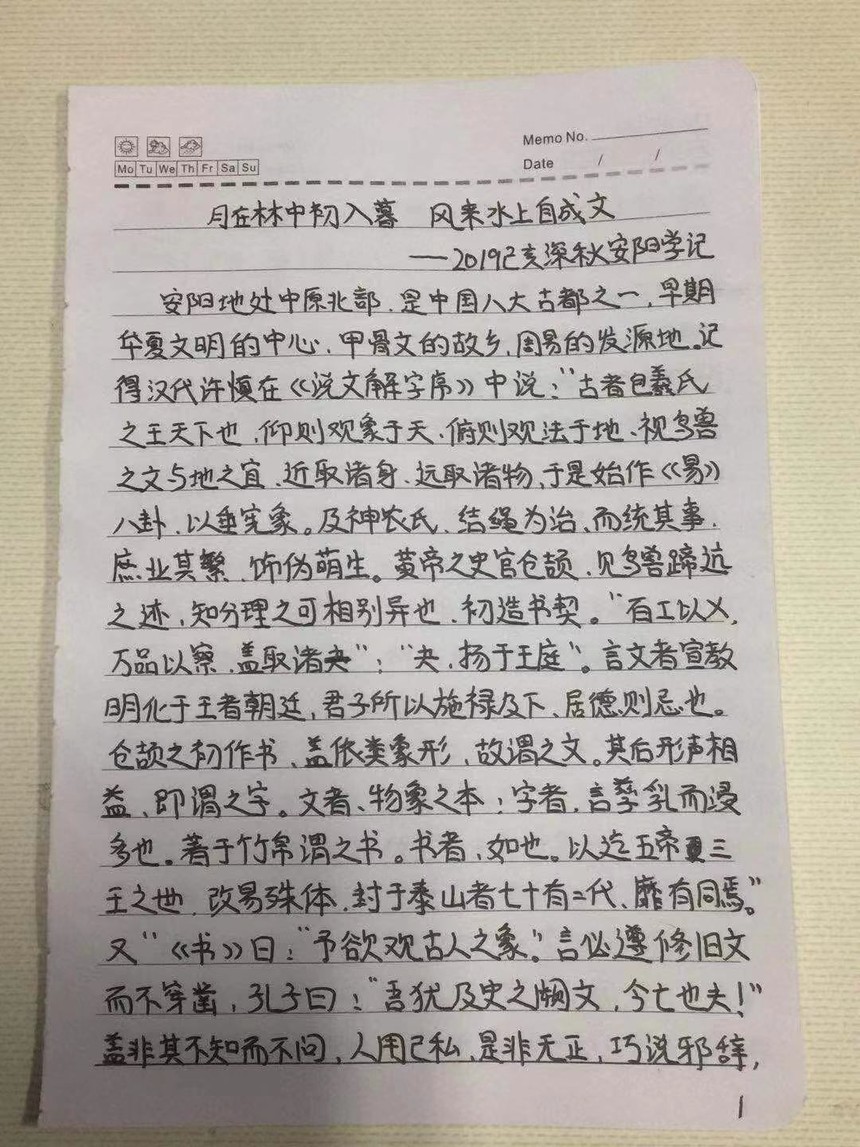 Memo No.
Mo Tu We Th Fr Sa Su
Date / /
月在林中初入暮 风来水上自成文
——2019己亥深秋安阳学记
安阳地处中原北部、是中国八大古都之一,早期
华夏文明的中心、甲骨文的故乡,周易的发源地。记
得汉代许慎在《说文解字序》中说:"古者包羲氏
之王天下也,仰则观象于天、俯则观法于地、视鸟兽
之文与地之宜、近取诸身、远取诸物,于是始作《易》
八卦、以垂宪象。及神农氏、结绳为治、而统其事、
庶业其繁、饰伪萌生。黄帝之史官仓颉、见鸟兽蹄迒
之迹、知分理之可相别异也、初造书契。"百工以乂,
万品以察、盖取诸夬";"夬、扬于王庭"。言文者宣教
明化于王者朝廷,君子所以施禄及下、居德则忌也。
仓颉之初作书、盖依类象形、故谓之文。其后形声相
益、即谓之字。文者、物象之本;字者、言孳乳而浸
多也。著于竹帛谓之书。书者、如也。以迄五帝三
王之世、改易殊体、封于泰山者七十有二代、靡有同焉。"
又"《书》曰:"予欲观古人之象。"言必遵修旧文
而不穿凿,孔子曰:"吾犹及史之阙文,今亡也夫!"
盖非其不知而不问,人用己私,是非无正,巧说邪辞,
1